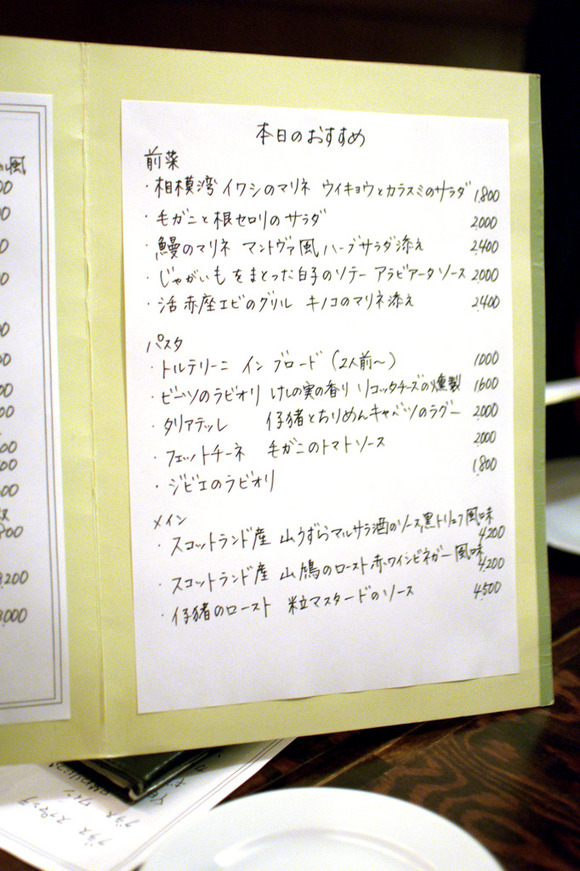 本日のおすすめ
前菜
・相模湾 イワシのマリネ ウイキョウとカラスミのサラダ 1,800
・毛ガニと根セロリのサラダ 2,000
・鰻のマリネ マントヴァ風 ハーブサラダ添え 2,400
・じゃがいもをまとった白子のソテー アラビアータソース 2,000
・活赤座エビのグリル キノコのマリネ添え 2,400
パスタ
・トルテリーニ イン ブロード (2人前〜) 1000
・ビーツのラビオリ けしの実の香り リコッタチーズの燻製 1600
・タリアテッレ 仔猪とちりめんキャベツのラグー 2,000
・フェットチーネ 毛ガニのトマトソース 2,000
・ジビエのラビオリ 1,800
メイン
・スコットランド産 山うずらマルサラ酒のソース,黒トリュフ風味 4,200
・スコットランド産 山鳩のロースト赤ワインビネガー風味 4,200
・仔猪のロースト 粒マスタードのソース 4,500
風
,200
,000
グラス スプマンテ
グラス ワイン